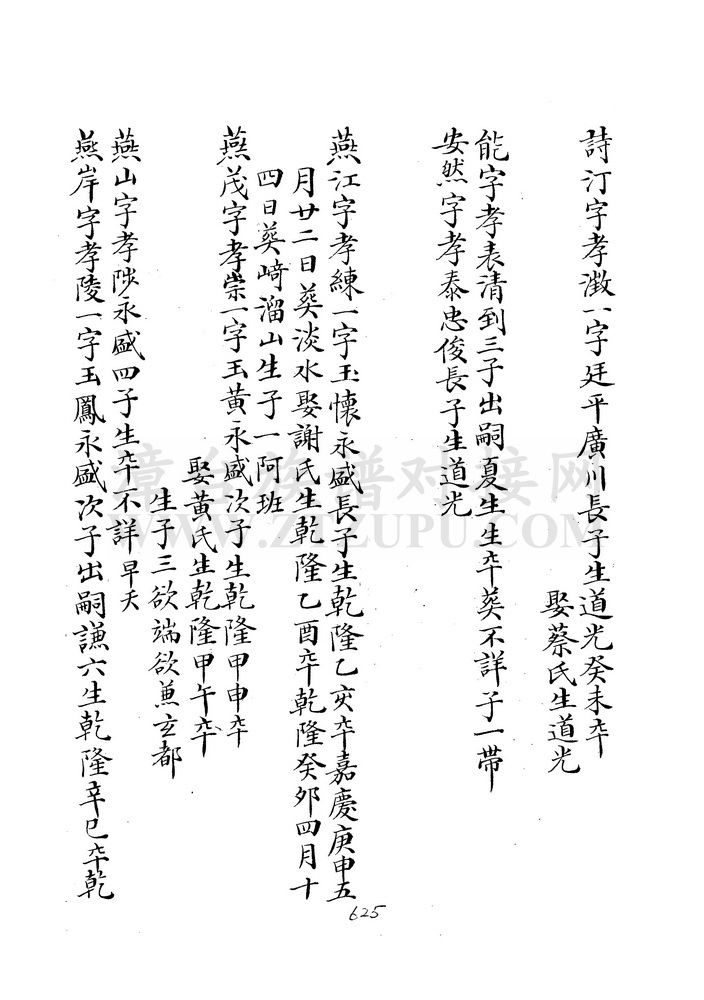 詩汀字孝澂一字廷平廣川長子生道光癸未卒
娶蔡氏生道光
能字孝表清到三子出嗣夏生生卒葵不詳子一帶
安然字孝泰忠俊長子生道光
燕江字孝練一字玉懷永盛長子生乾隆乙亥卒嘉慶庚申五
月廿二日葵淡水娶謝氏生乾隆乙酉卒乾隆癸卯四月十
四日葵﨑溜山生子一阿班
燕茂字孝崇一字玉黃永盛次子生乾隆甲申卒
娶黃氏生乾隆甲午卒
生子三欲端欲兼玄都
燕山字孝陟永盛四子生卒不詳早夭
燕岸字孝陵一字玉鳳永盛次子出嗣謙六生乾隆辛巳卒乾
625
章台族谱对接网
WWW.ZTZUPU.COM